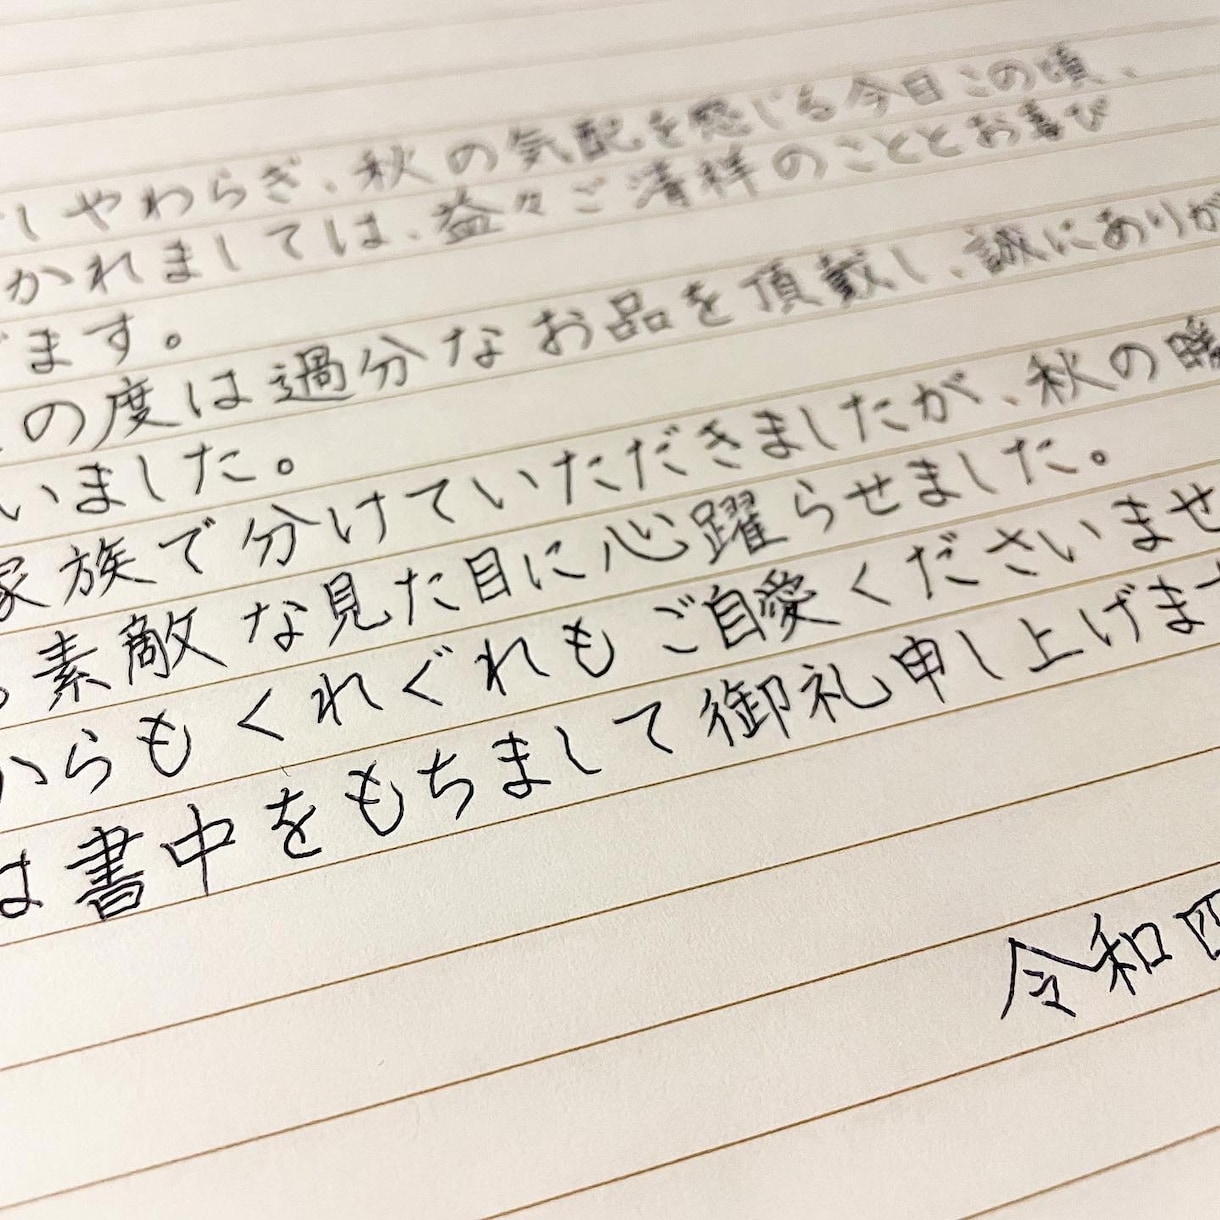 しやわらぎ、秋の気配を感じる今日この頃、
かれましては、益々ご清祥のこととお喜び
ます。
の度は過分なお品を頂戴し、誠にありが
いました。
家族で分けていただきましたが、秋の
素敵な見た目に心躍らせました。
からもくれぐれもご自愛くださいませ
は書中をもちまして御礼申し上げます
令和四